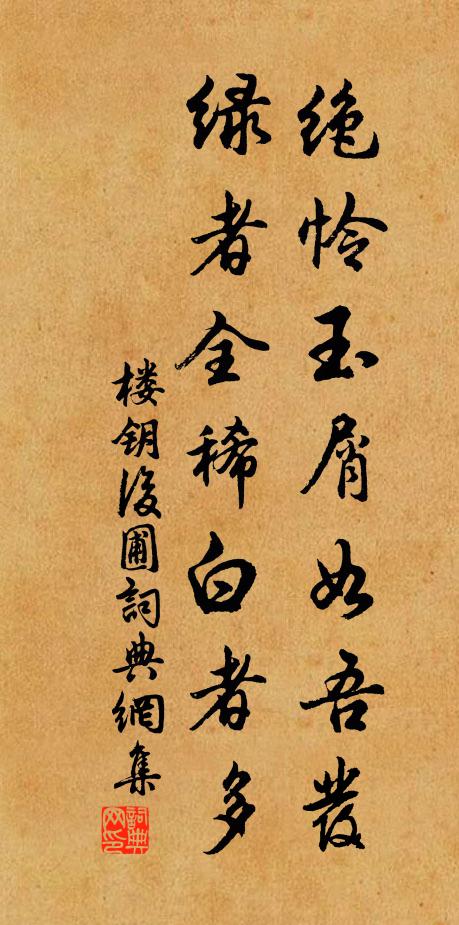 绝怜玉屑如吾发
绿者全稀白者多
楼钥後圃詞典網集
詞典网印